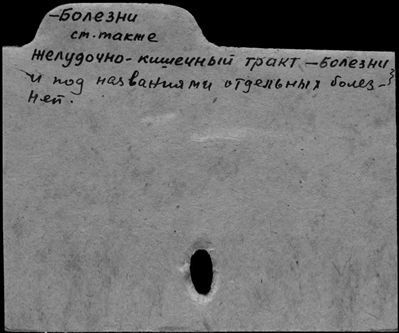 —Болезни
см. также
Желудочно-кишечный тракт —Болезни;
и под названиями отдельных болез-
ней.